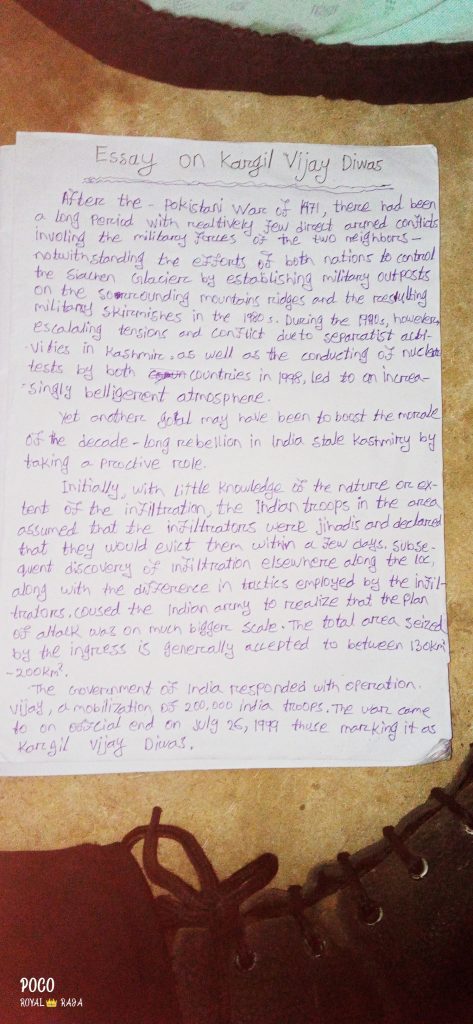 Essay on Kargil Vijay Diwas
After the - Pakistani War of 1971, there had been
a long Period with realtively few direct armed conflicts
involing the military forces of the two neighbors -
notwithstanding the efforts of both nations to control
the Siachen Glacier by establishing military outposts
on the sorrounding mountains ridges and the resulting
military skirmishes in the 1980s. During the 1990s, however,
escalating tensions and conflict dueto separatist acti-
vities in Kashmir, as well as the conducting of nuclear
tests by both countries in 1998, led to an increa-
singly belligerent atmosphere.
Yet another goal may have been to boost the morale
of the decade-long rebellion in India state Kashmiry by
taking a proctive role.
Initially, with little knowledge of the nature or ex-
tent of the infiltration, the Indian troops in the area
assumed that the infiltrators were jihadis and declared
that they would evict them within a few days. Subse-
quent discovery of infiltration elsewhere along the loc,
along with the difference in tactics employed by the infil-
trators. coused the Indian army to realize that the plan
of attack was on much bigger scale. The total area seized
by the ingress is generally accepted to between 130km²
-200km².
The Government of India responded with operation.
vijay, a mobilization of 200,000 india troops. The war came
to on official end on July 26, 1999 thuse marking it as
Kargil Vijay Diwas.
POCO
ROYAL RAJA